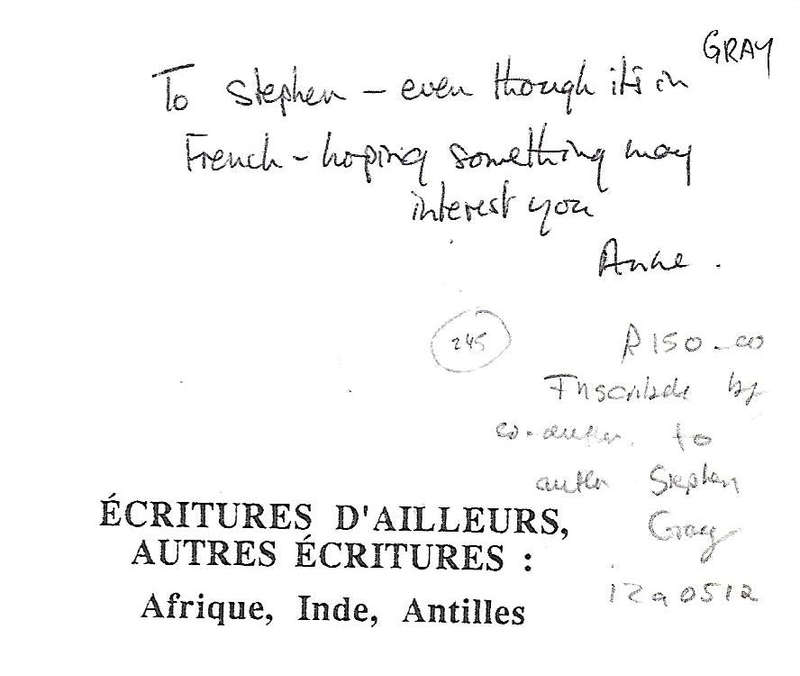 GRAY
To Stephen – even though it's in
French – hoping something may
interest you
Anne.
245
R150-00
Inscribed by
co-author. to
author Stephen
Gray
ÉCRITURES D'AILLEURS,
AUTRES ÉCRITURES :
Afrique, Inde, Antilles